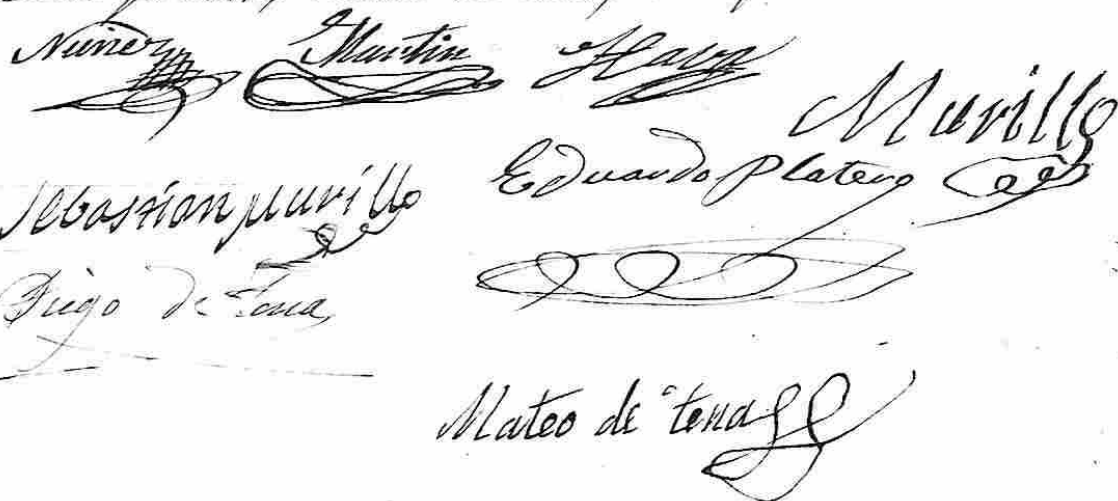 Nuñez Martin Haya
Murillo
Sebastian Murillo Eduardo Platero
Diego de Tena
Mateo de tena